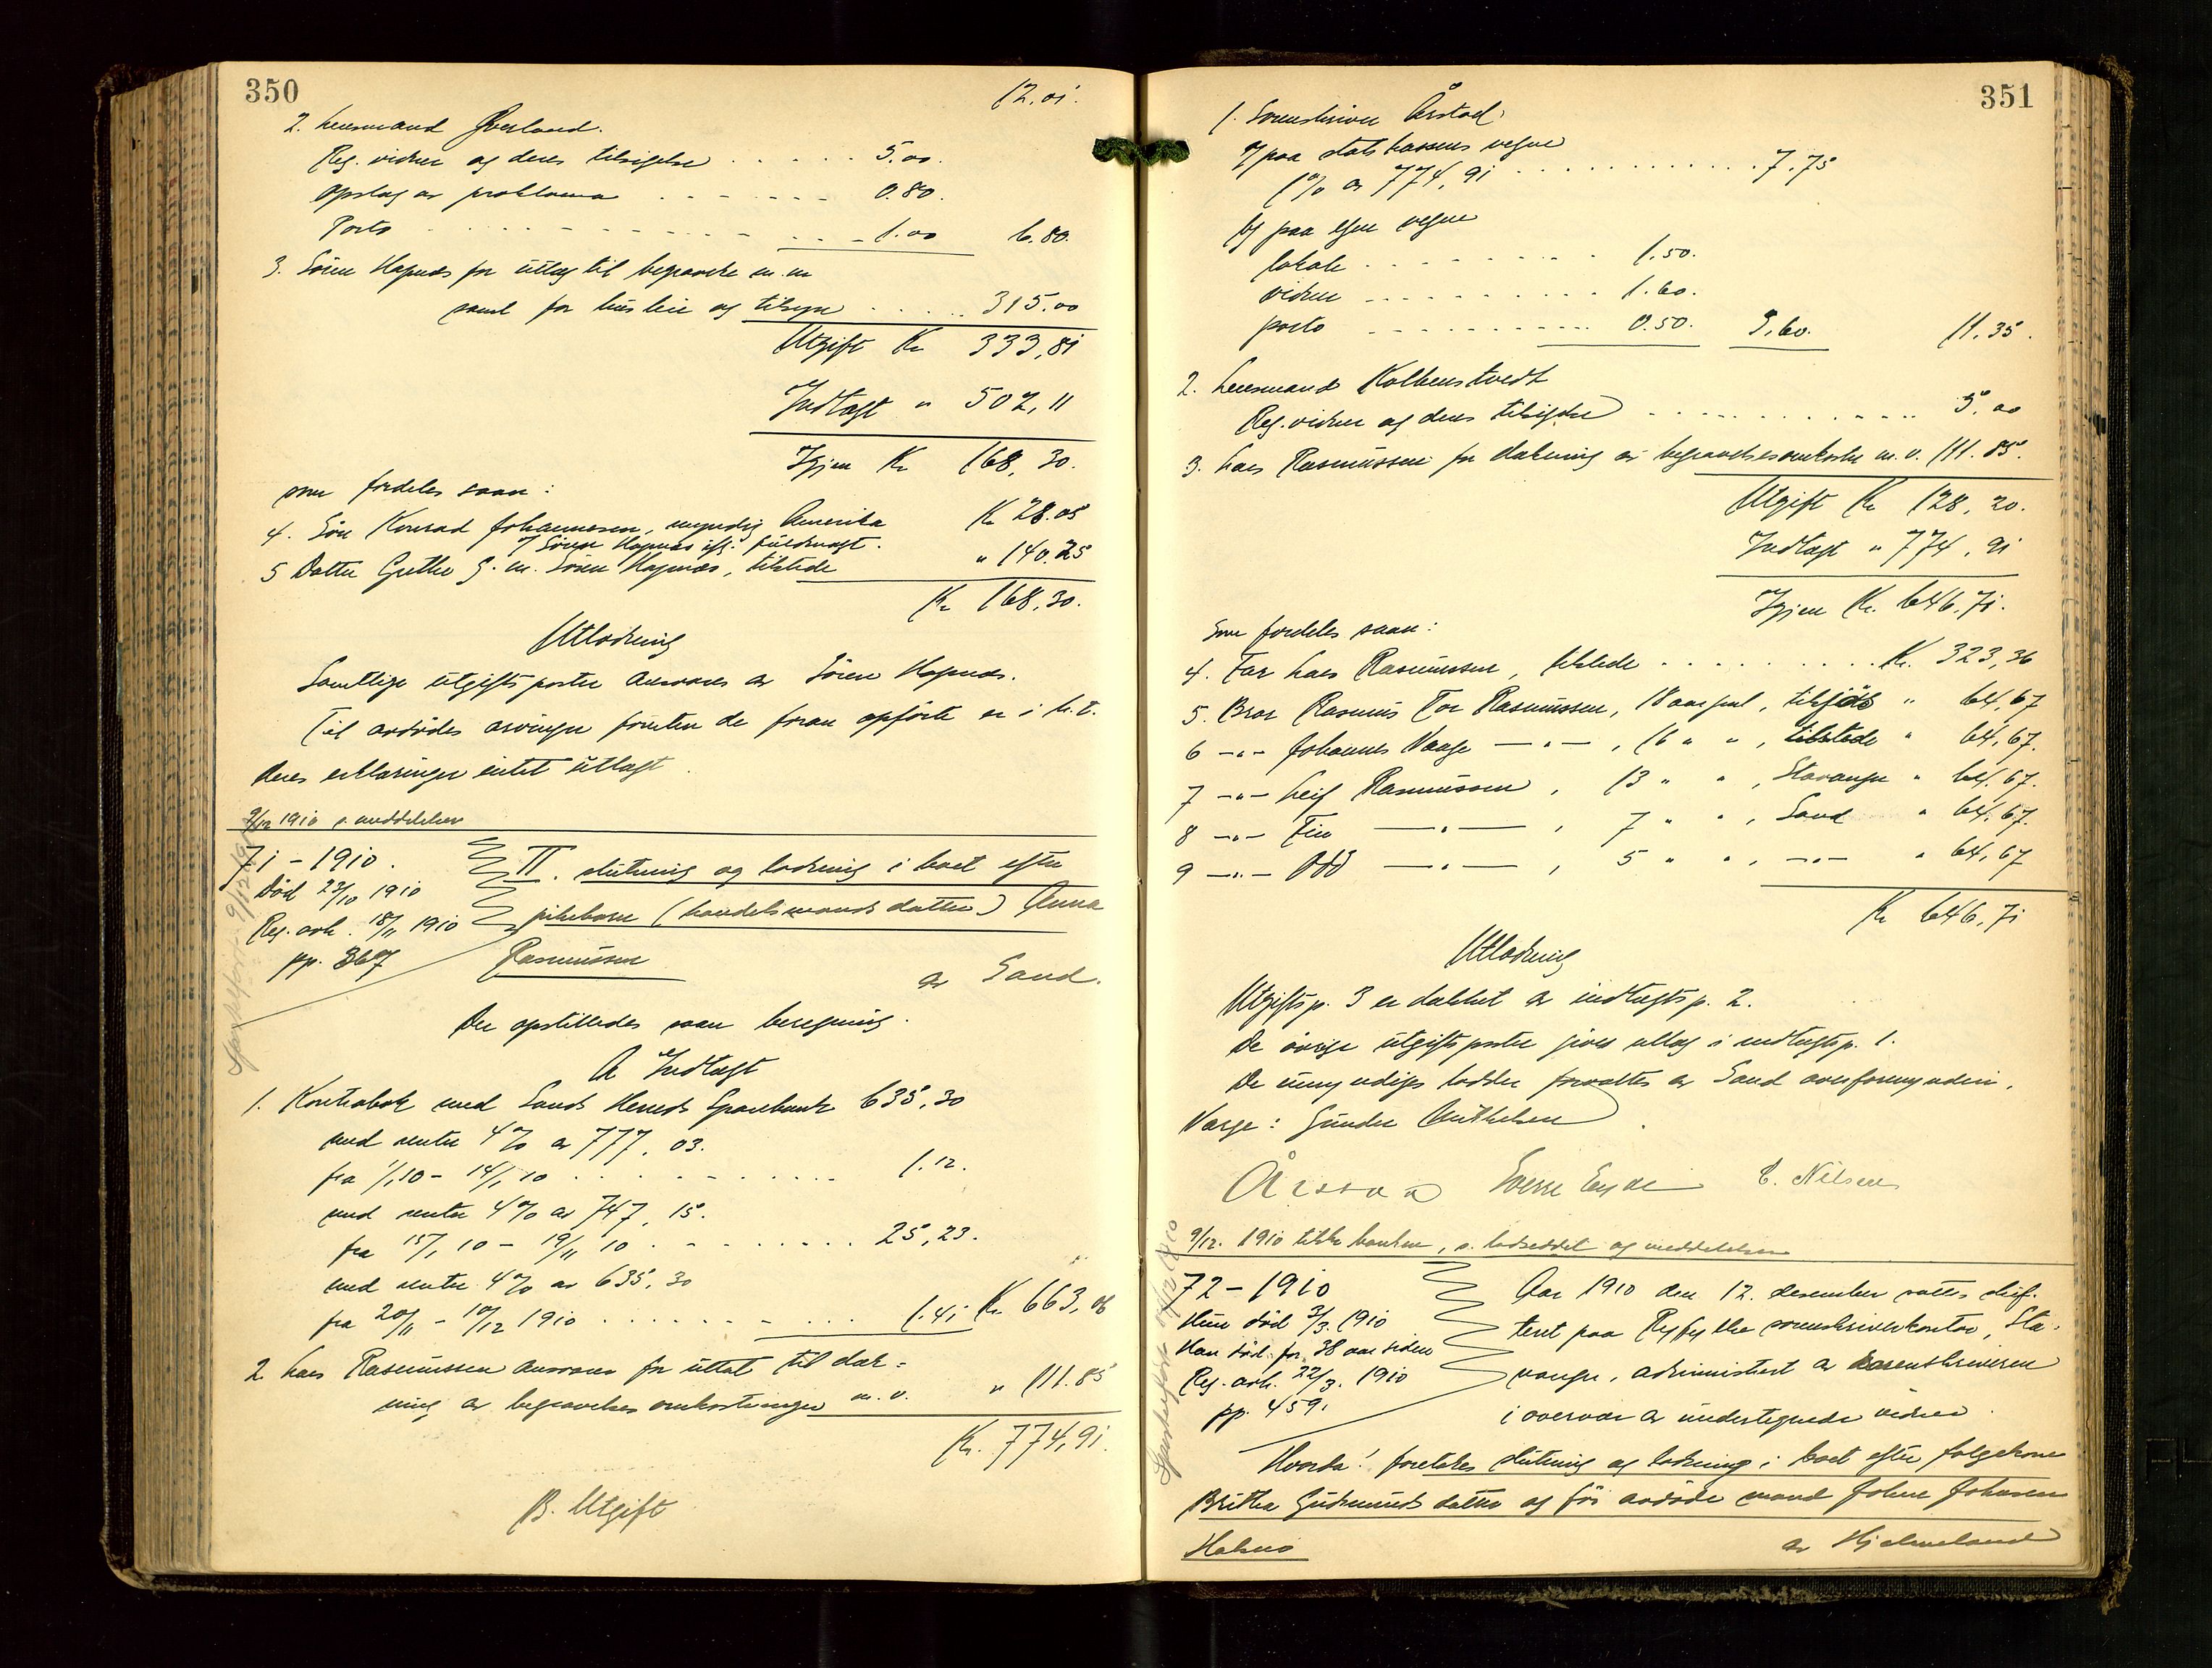 350
12.01.
2. Lensmand Øverland.
Reg. vidner og deres tilsigelse . . . . . . 5.00.
Opslag av proklama . . . . . . . 0.80.
Porto . . . . . . . . . . . . 1.00 6.80.
3. Sören Hapnæs for utlæg til begravelse m.m
samt for husleie og tilsyn . . . . . . 315.00
Utgift Kr 333,81
Indtægt " 502,11
Igjen Kr 168,30.
som fordeles saan:
4. Sön Konrad Johannessen, myndig Amerika Kr 28.05
v/ Sören Hapnæs ifl. fuldmagt.
5 Datter Grethe G. m. Sören Hapnæs, tilstede " 140.25
Kr 168,30.
Utlodning
Samtlige utgiftsposter ansvares av Sören Hapnæs.
Til avdödes arvinger foruten de foran opförte er i h.t.
deres erklæringer intet utlagt.
9/12 1910 s. meddelelser
71 - 1910.
Död 23/10 1910
Reg. avh. 18/11 1910
pp. 367
II. slutning og lodning i boet efter
pikebarn (handelsmands datter) Anna
Rasmussen
av Sand.
Der opstilledes saan beregning.
A Indtægt
1. Kontrabok med Sands Herreds Sparebank 635,30
med renter 4% av 777,03.
fra 1/1 10 - 14/1 10 . . . . . . . . 1.12.
med renter 4% av 747,15.
fra 15/1 10 - 19/11 10 . . . . . . . . 25,23.
med renter 4% av 635,30
fra 20/11 - 10/12 1910 . . . . . . . . 1.41 Kr. 663,06
2. Lars Rasmussen ansvarer for uttat til dæk-
ning av begravelsesomkostninger m.v. " 111.85
Kr. 774,91.
B. Utgift
351
1. Sorenskriver Årstad:
a) paa statskassens vegne
1% av 774,91 . . . . . . . . . . . 7.75
b) paa egne vegne
lokale . . . . . . . . . 1.50.
vidner . . . . . . . . . 1.60.
porto . . . . . . . . . 0.50. 3,60. 11,35.
2. Lensmand Kolbenstvedt
Reg. vidner og deres tilsigelse . . . . . . . . . . 5.00
3. Lars Rasmussen for dækning av begravelsesomkostn. m.v. 111.85.
Utgift Kr 128,20.
Indtægt " 774,91
Igjen Kr. 646,71.
Som fordeles saan:
4. Far Lars Rasmussen, tilstede . . . . . . . . . Kr. 323,36
5. Bror Rasmus Tor Rasmussen, 18 aar gml, tilsjös " 64,67
6 -"- Johannes Vaage -"-, 16 " ", tilstede " 64,67.
7 -"- Leif Rasmussen, 13 " ", Stavanger " 64,67.
8 -"- Fin -"-, 7 " ", Sand 64,67.
9 -"- Odd -"-, 5 " ", -"- " 64,67
Kr 646,71
Utlodning
Utgiftsp. 3 er dækket av indtægtsp. 2.
De övrige utgiftsposter gives utlæg i indtægtsp. 1.
De umyndiges lodder forvaltes av Sand overformynderi.
Værge: Gunder
Årstad C. Nilsen
9/12. 1910 tilskr. banken, s. lodseddel og meddelelser
72 - 1910
Hun död 3/3. 1910
Han död for 38 aar siden
Reg. avh. 22/3. 1910
pp. 459.
Aar 1910 den 12. desember sattes skif-
teret paa Ryfylke sorenskriverkontor, Sta-
vanger, administrert av sorenskriveren
i overvær av undertegnede vidner.
Hvorda! foretokes slutning og lodning i boet efter folgekone
Britha Gudmundsdatter og för avdöde mand Johne Johnsen
av Hjelmeland